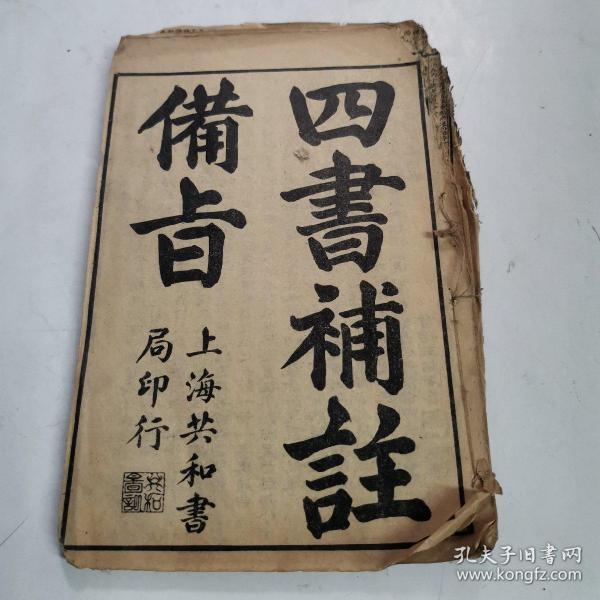 四書補註
備旨
上海共和書
局印行
孔夫子旧书网
www.kongfz.com